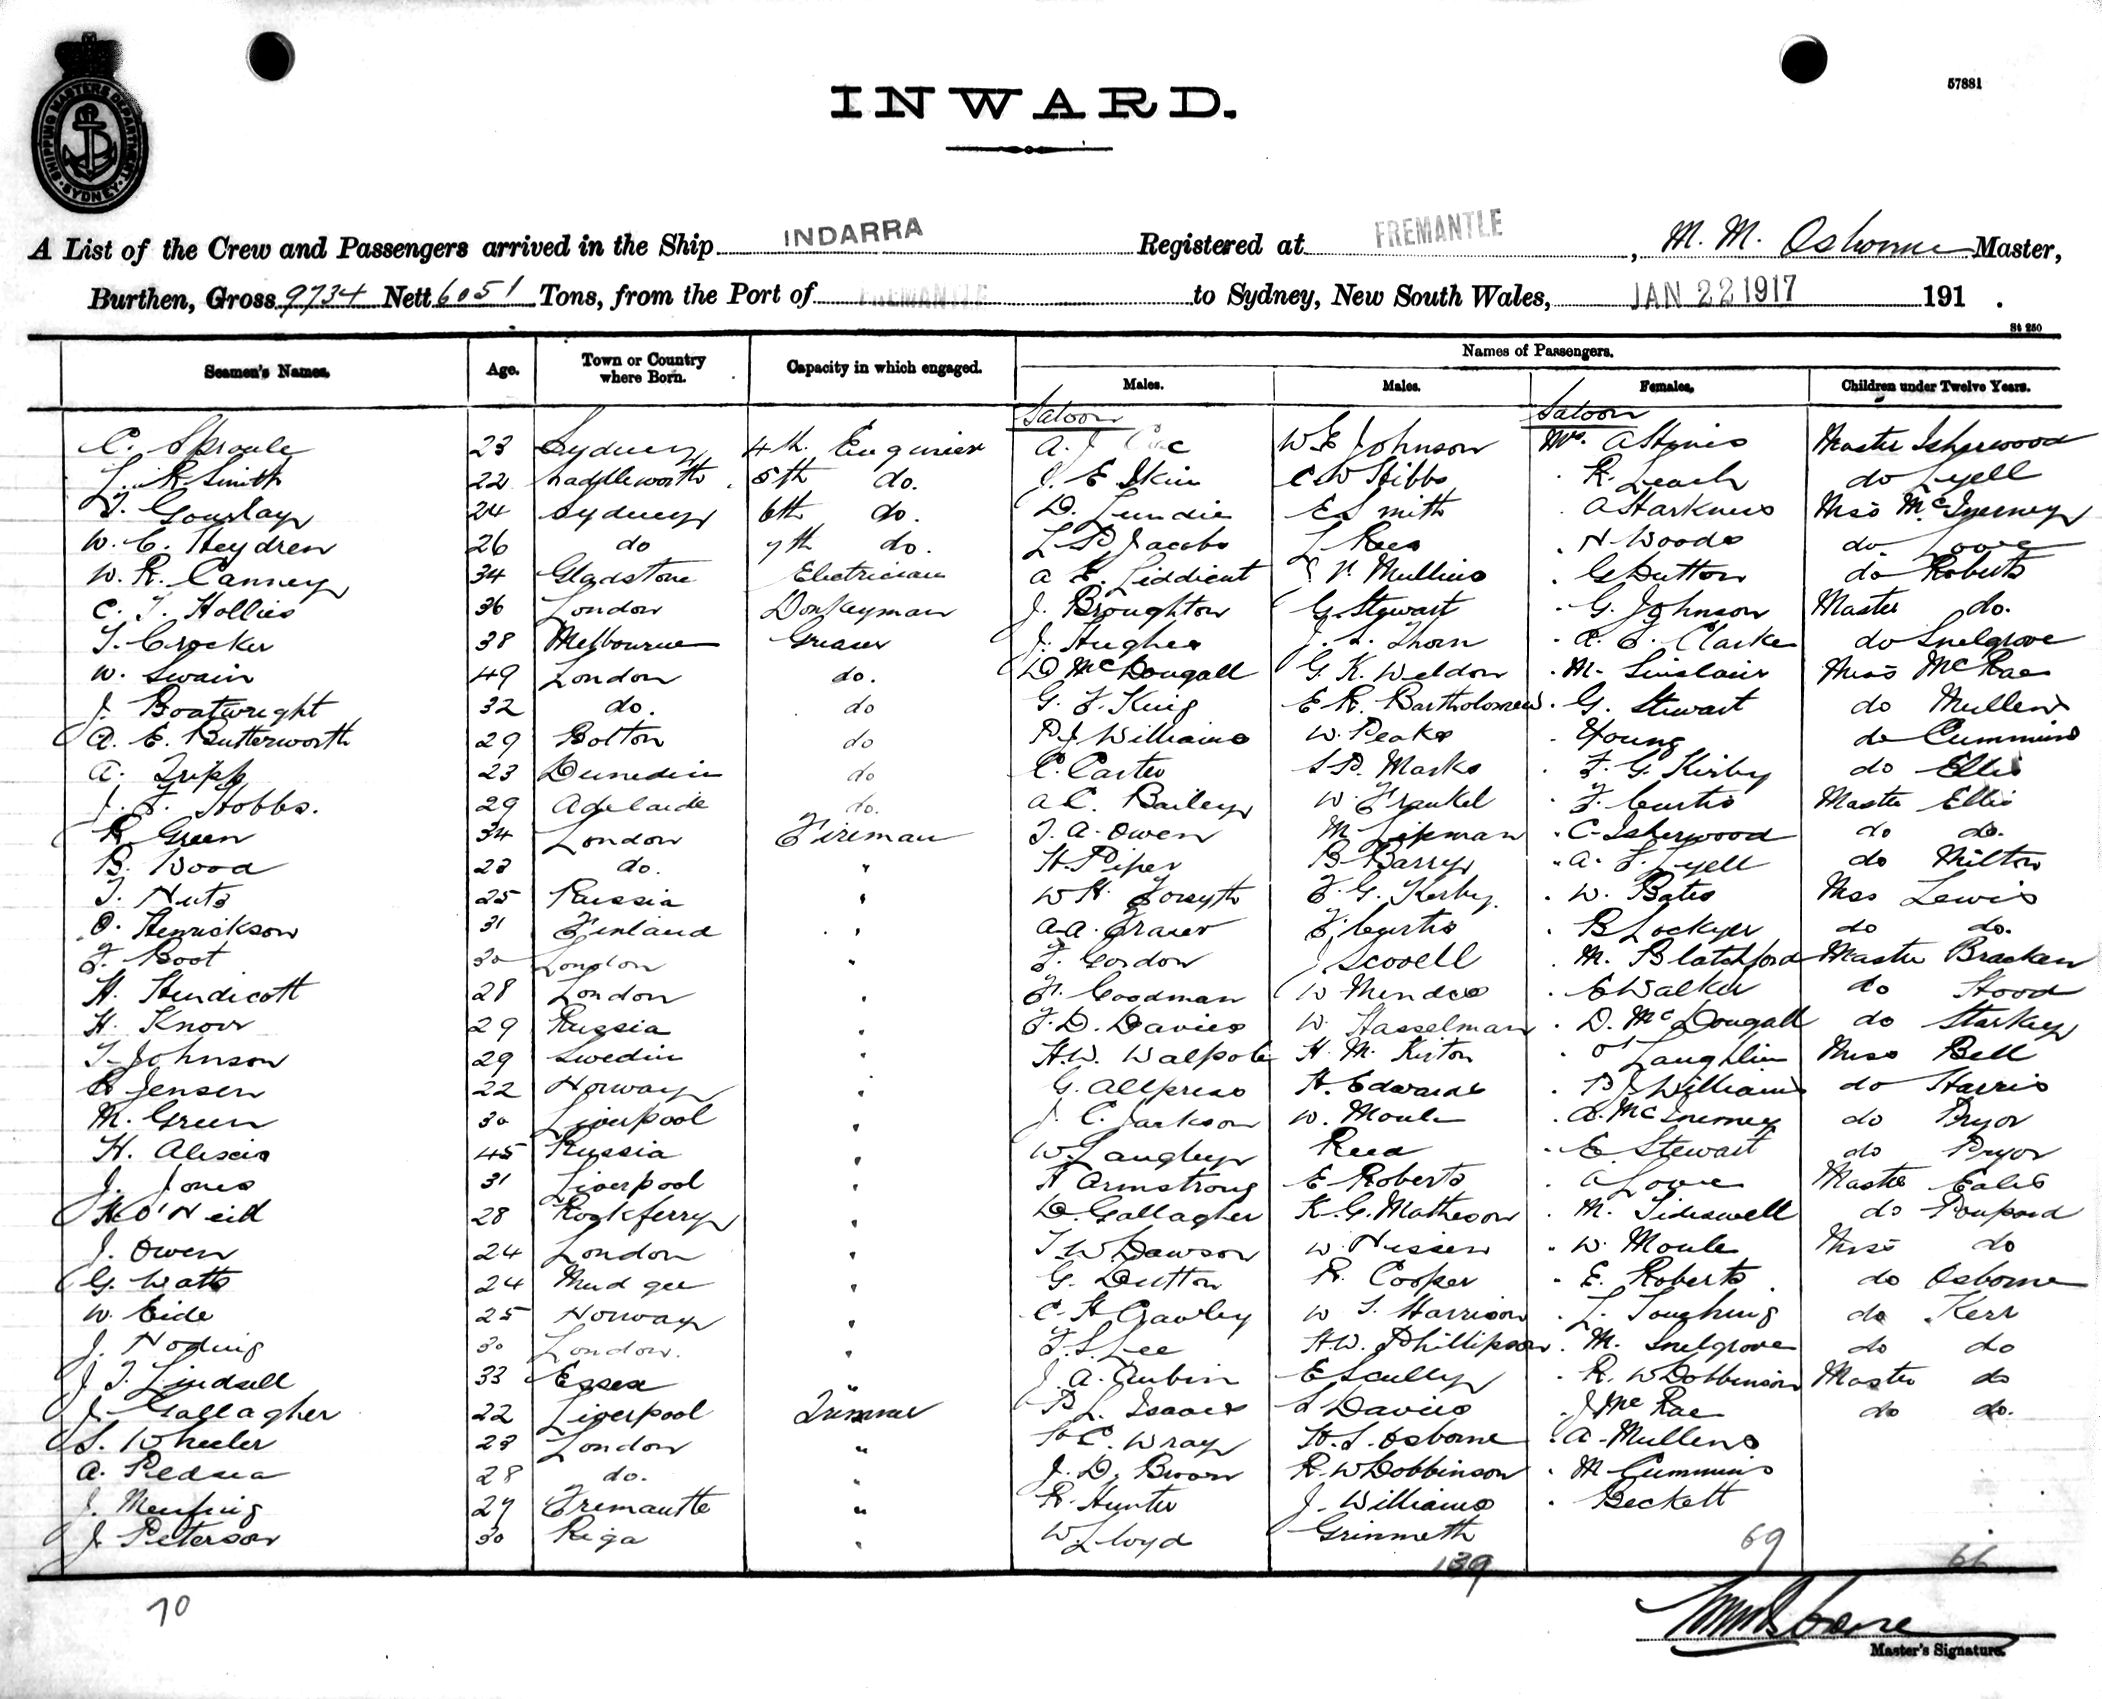 57881
SHIPPING MASTERS DEPARTMENT SYDNEY
INWARD.
A List of the Crew and Passengers arrived in the Ship INDARRA Registered at FREMANTLE, M. M. Osborne Master,
Burthen, Gross 9734 Nett 6051 Tons, from the Port of FREMANTLE to Sydney, New South Wales, JAN 22 1917 191 .
St 250
Seamen's Names. Age. Town or Country where Born. Capacity in which engaged. Names of Passengers.
Males. Males. Females. Children under Twelve Years.
Saloon Saloon
C. Sproule 23 Sydney 4th Engineer A. J. W E Johnson Mrs. Master Isherwood
L. R. Smith 22 5th do. J. E Skin C W Stibbs R. Leach do Lyell
T. Gourlay 24 Sydney 6th do. D. Lundie E Smith A Harkness Miss McInerney
W. C. Heydren 26 do 7th do. L P Jacobs L Rees N Woods do Lowe
W. R. Canney 34 Gladstone Electrician A E. Liddicut V. Mullins G Dutton do Roberts
C. T. Hollies 36 London Donkeyman J. Broughton G. Stewart G. Johnson Master do.
T. Crocker 38 Melbourne Greaser J. Hughes J. L. Thorn A. E. Clarke do Snelgrove
W. Swain 49 London do. D McDougall G. K. Weldon M. Sinclair Miss McRae
J. Boatwright 32 do. do G. F. King E. R. Bartholomew G. Stewart do Mullens
A. E. Butterworth 29 Bolton do P J Williams W. Peake Young do Cummins
A. Tripp 23 Dunedin do C. Carter S D. Marks F. G. Kirby do Ellis
J. F. Hobbs. 29 Adelaide do. A C. Bailey W. Frankel F. Curtis Master Ellis
R. Green 34 London Fireman T. A. Owen M Lipman C. Isherwood do do.
B. Wood 23 do. " H. Piper B Barry A. F. Lyell do Milton
T. Nuts 25 Russia " W H Forsyth F. G. Kerby. W. Bates Miss Lewis
O. Henrickson 31 Finland " A A. Fraser F. Curtis B Lockyer do do.
F. Boot 30 London " F. Gordon J Scovell M. Blatchford Master Bracken
H. Hendicott 28 London " F. Goodman W Mendes E Walker do Hood
H. Knorr 29 Russia " F. D. Davies W. Hasselman D. McDougall do Starkey
T. Johnson 29 Swedin " H. W. Walpole H. M. Kirton O'Laughlin Miss Bell
A Jensen 22 Norway " G. Allpress H. Edwards P J Williams do Harris
M. Green 30 Liverpool " J. C. Jackson W. Moule A. McInerney do Pryor
H. Alexis 45 Russia " W. Langley Reed E. Stewart do Pryor
J. Jones 31 Liverpool " H Armstrong E Roberts A Lowe Master Eales
H O'Neill 28 Rockferry " D. Gallagher K. G. Matheson M. Tideswell do Poupard
J. Owen 24 London " T. W Dawson W. Nissen W. Moule Miss do
G. Watts 24 Mudgee " G. Dutton R. Cooper E. Roberts do Osborne
W. Eide 25 Norway " C. H Crawley W T. Harrison L. Toughing do Kerr
J. Noding 30 London. " F. S. Lee H. W. Phillipson M. Snelgrove do do
J T. Lindsell 33 Essex " J. A. Aubin E Scully R. W Dobbinson Master do
J. Gallagher 22 Liverpool Trimmer P. L. Isaacs S Davies J McRae do do.
S. Wheeler 23 London " H C. Wray H. S. Osborne A. Mullens
A. Pedsea 28 do. " J. D. Brown R. W Dobbinson M Cummins
J. 27 Fremantle " R. Hunter J. Williams Beckett
J. Peterson 30 Riga " W. Lloyd Grinmeth
139 69 66
70
Master's Signature.